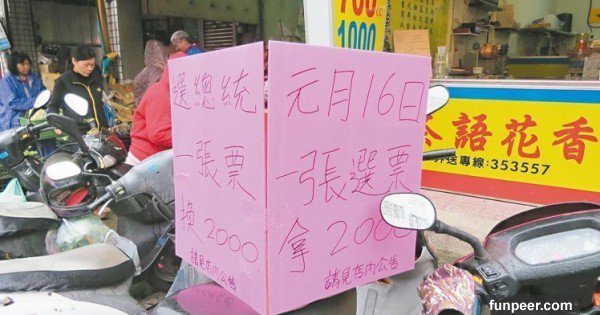 選總統
一張票
換2000
請見店內公告
元月16日
一張選票
拿2000
請見店內公告
700cc
1000
語花香
外送專線:353557
funpeer.com